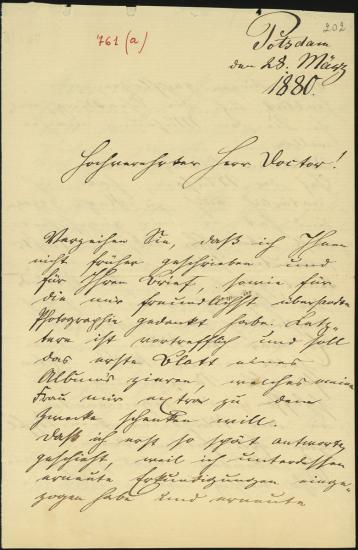 761 (a)
202
Potsdam
den 28. März
1880.
Hochverehrter Herr Doctor!
Verzeihen Sie, daß ich Ihnen
nicht früher geschrieben und
für Ihren Brief, sowie für
die mir freundlichst übersandte
Photographie gedankt habe. Letz-
tere ist vortrefflich und soll
das erste Blatt eines
Albums zieren, welches meine
Frau mir extra zu dem
Zwecke schenken will.
Daß ich erst so spät antworte
geschieht, weil ich unterdessen
erneute Erkundigungen einge-
zogen habe und erneute